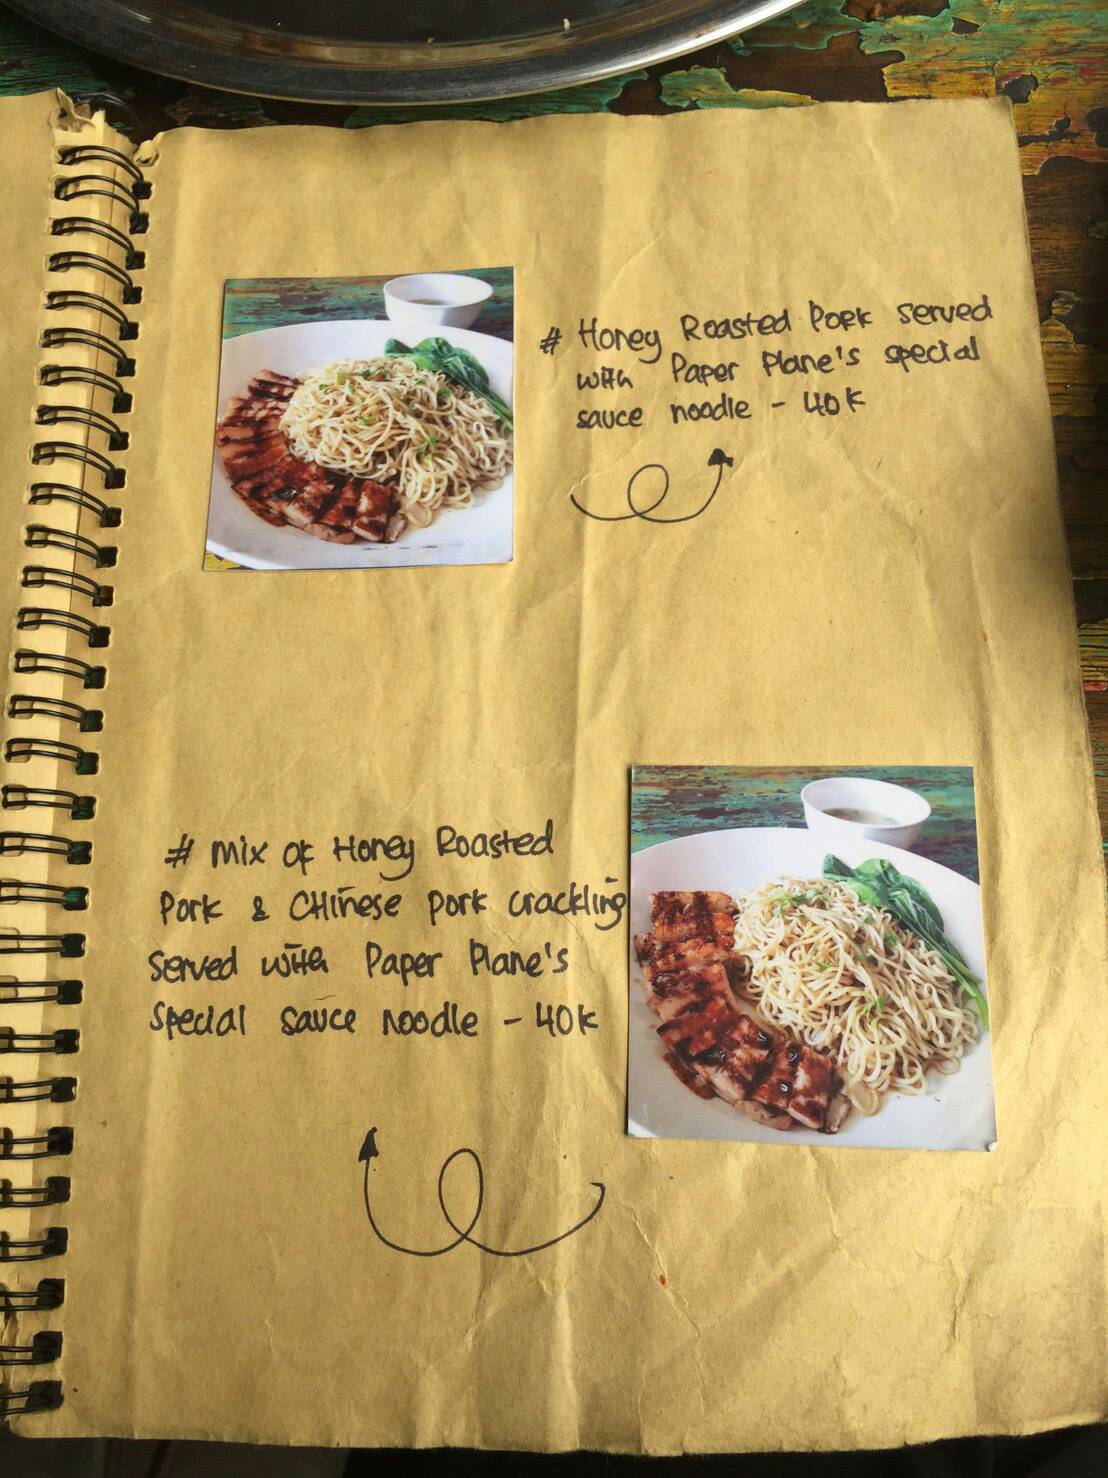 # Honey Roasted Pork served
with Paper Plane's special
sauce noodle - 40K
# Mix of Honey Roasted
Pork & Chinese pork crackling
served with Paper Plane's
special sauce noodle - 40K